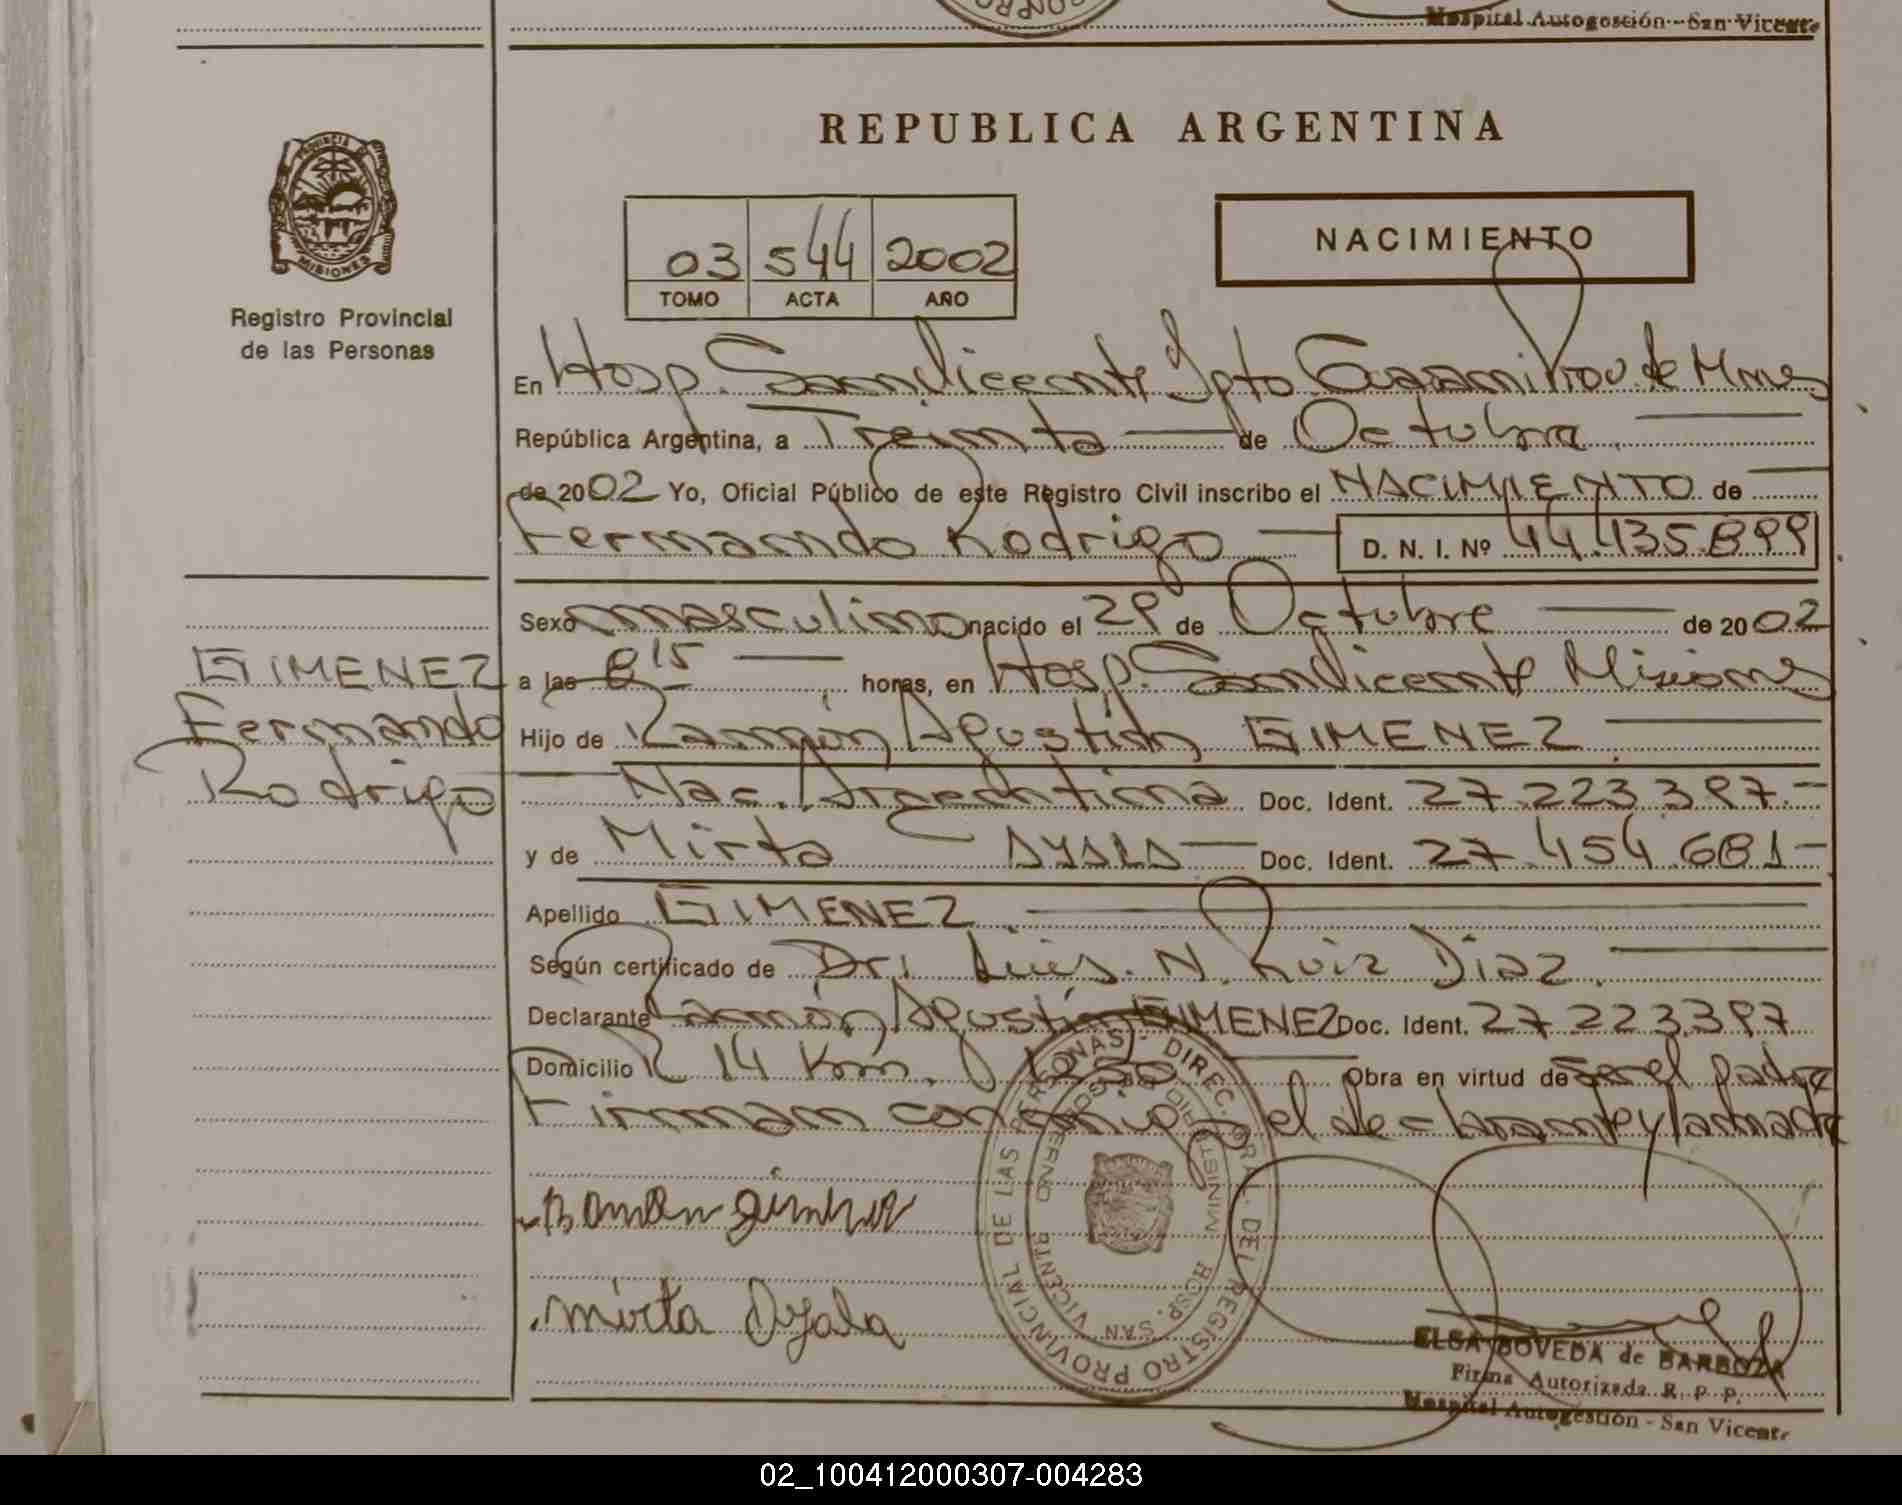 Hospital Autogestión - San Vicente
REPUBLICA ARGENTINA
PROVINCIA DE
MISIONES
Registro Provincial
de las Personas
03 544 2002
TOMO ACTA AÑO
NACIMIENTO
En Hosp. San Vicente Dpto Guaraní Prov. de Mnes
República Argentina, a Treinta de Octubre
de 2002 Yo, Oficial Público de este Registro Civil inscribo el NACIMIENTO de
Fernando Rodrigo D. N. I. Nº 44.435.899
Sexo masculino nacido el 29 de Octubre de 2002
GIMENEZ
Fernando
Rodrigo
a las 8 15 horas, en Hosp. San Vicente Misiones
Hijo de Ramón Agustín GIMENEZ
Nac. Argentina Doc. Ident. 27.223.397.-
y de Mirta AYALA Doc. Ident. 27.454.681-
Apellido GIMENEZ
Según certificado de Dr. Luis. N. Ruiz Diaz
Declarante Ramón Agustín GIMENEZ Doc. Ident. 27 223.397
Domicilio R 14 Km. 1250 Obra en virtud de ser el padre
Firman conmigo el declarante y la madre
Ramon Gimenez
Mirta Ayala
REGISTRO PROVINCIAL DE LAS PERSONAS - DIREC. GRAL. DEL
MINISTERIO DE GOBIERNO
HOSP. SAN VICENTE
ELSA BOVEDA de BARBOZA
Firma Autorizada R. P. P.
Hospital Autogestión - San Vicente
02_100412000307-004283